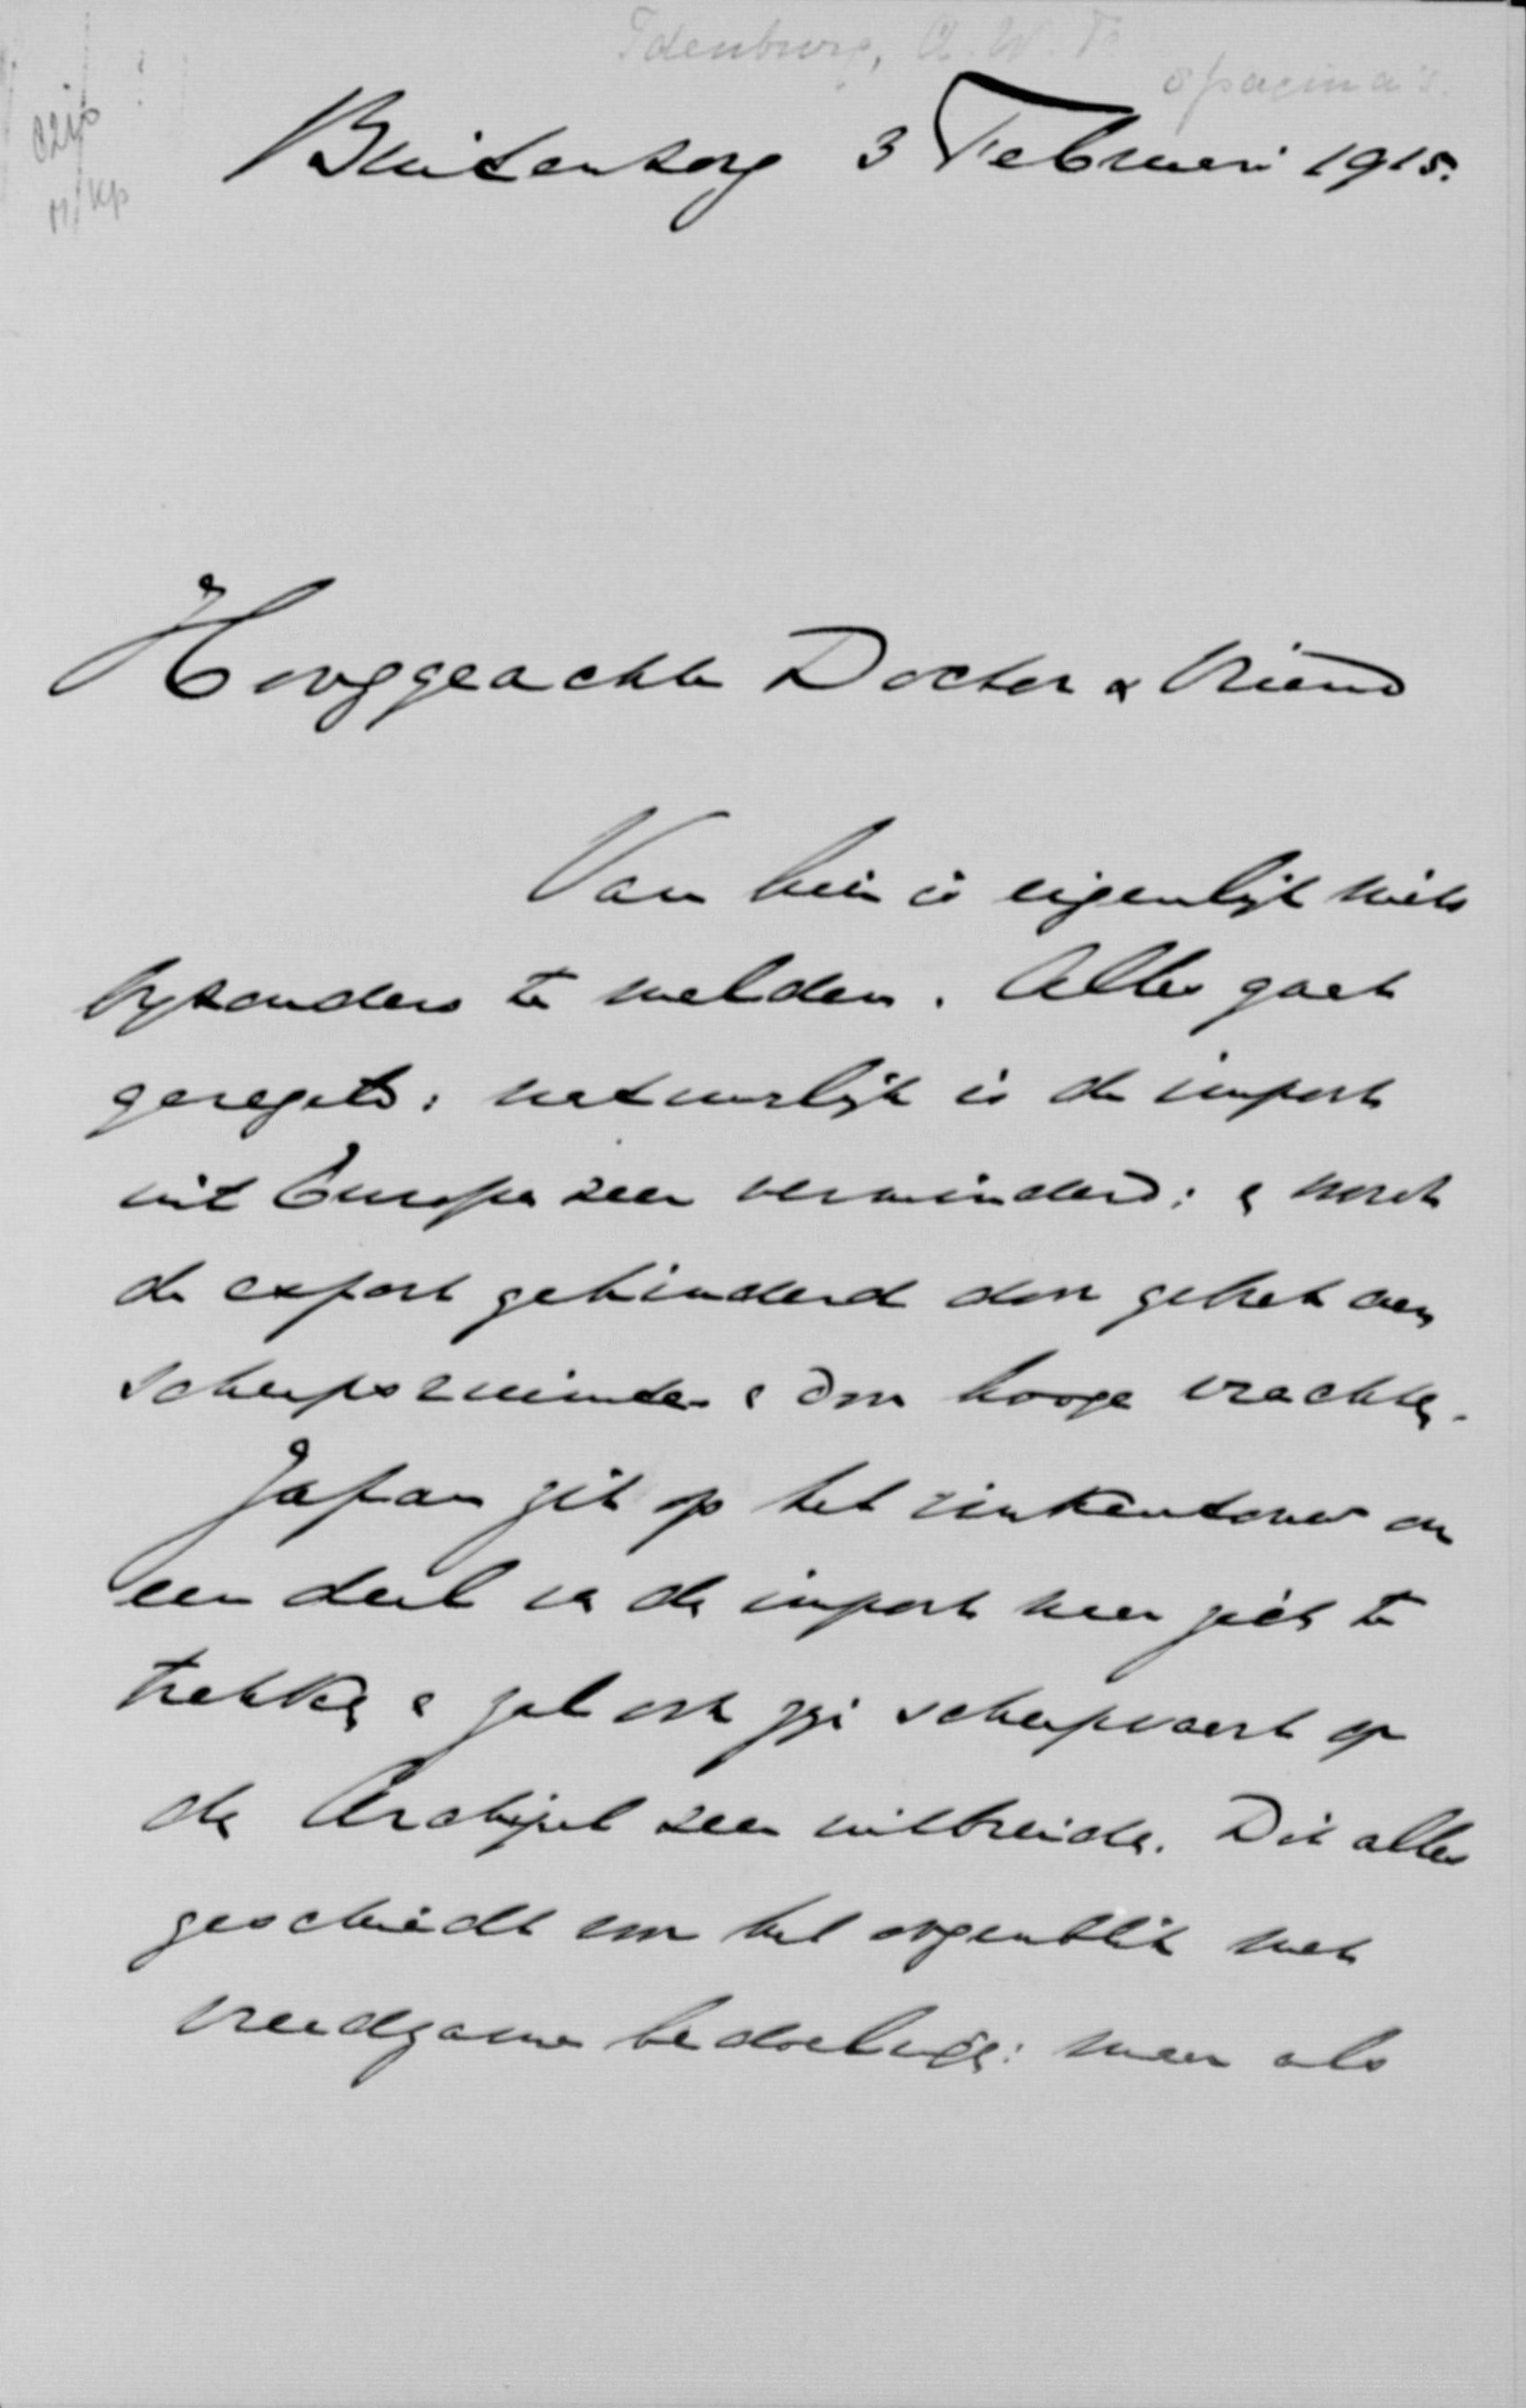 Idenburg, A.W.F.
8 pagina's.
Buitenzorg 3 Februari 1915.
Hooggeachte Doctor & Vriend
Van hier is eigenlijk niets
byzonders te melden. Alles gaat
geregeld; natuurlijk is de import
uit Europa zeer verminderd; & wordt
de export gehinderd door gebrek aan
scheepsruimte & door hooge vrachten.
Japan zit op het vinkentouw om
een deel van de import naar zich te
trekken & zal ook zijn scheepvaart op
den Archipel zeer uitbreiden. Dit alles
geschiedt voor het oogenblik met
vreedzame bedoelingen: maar als